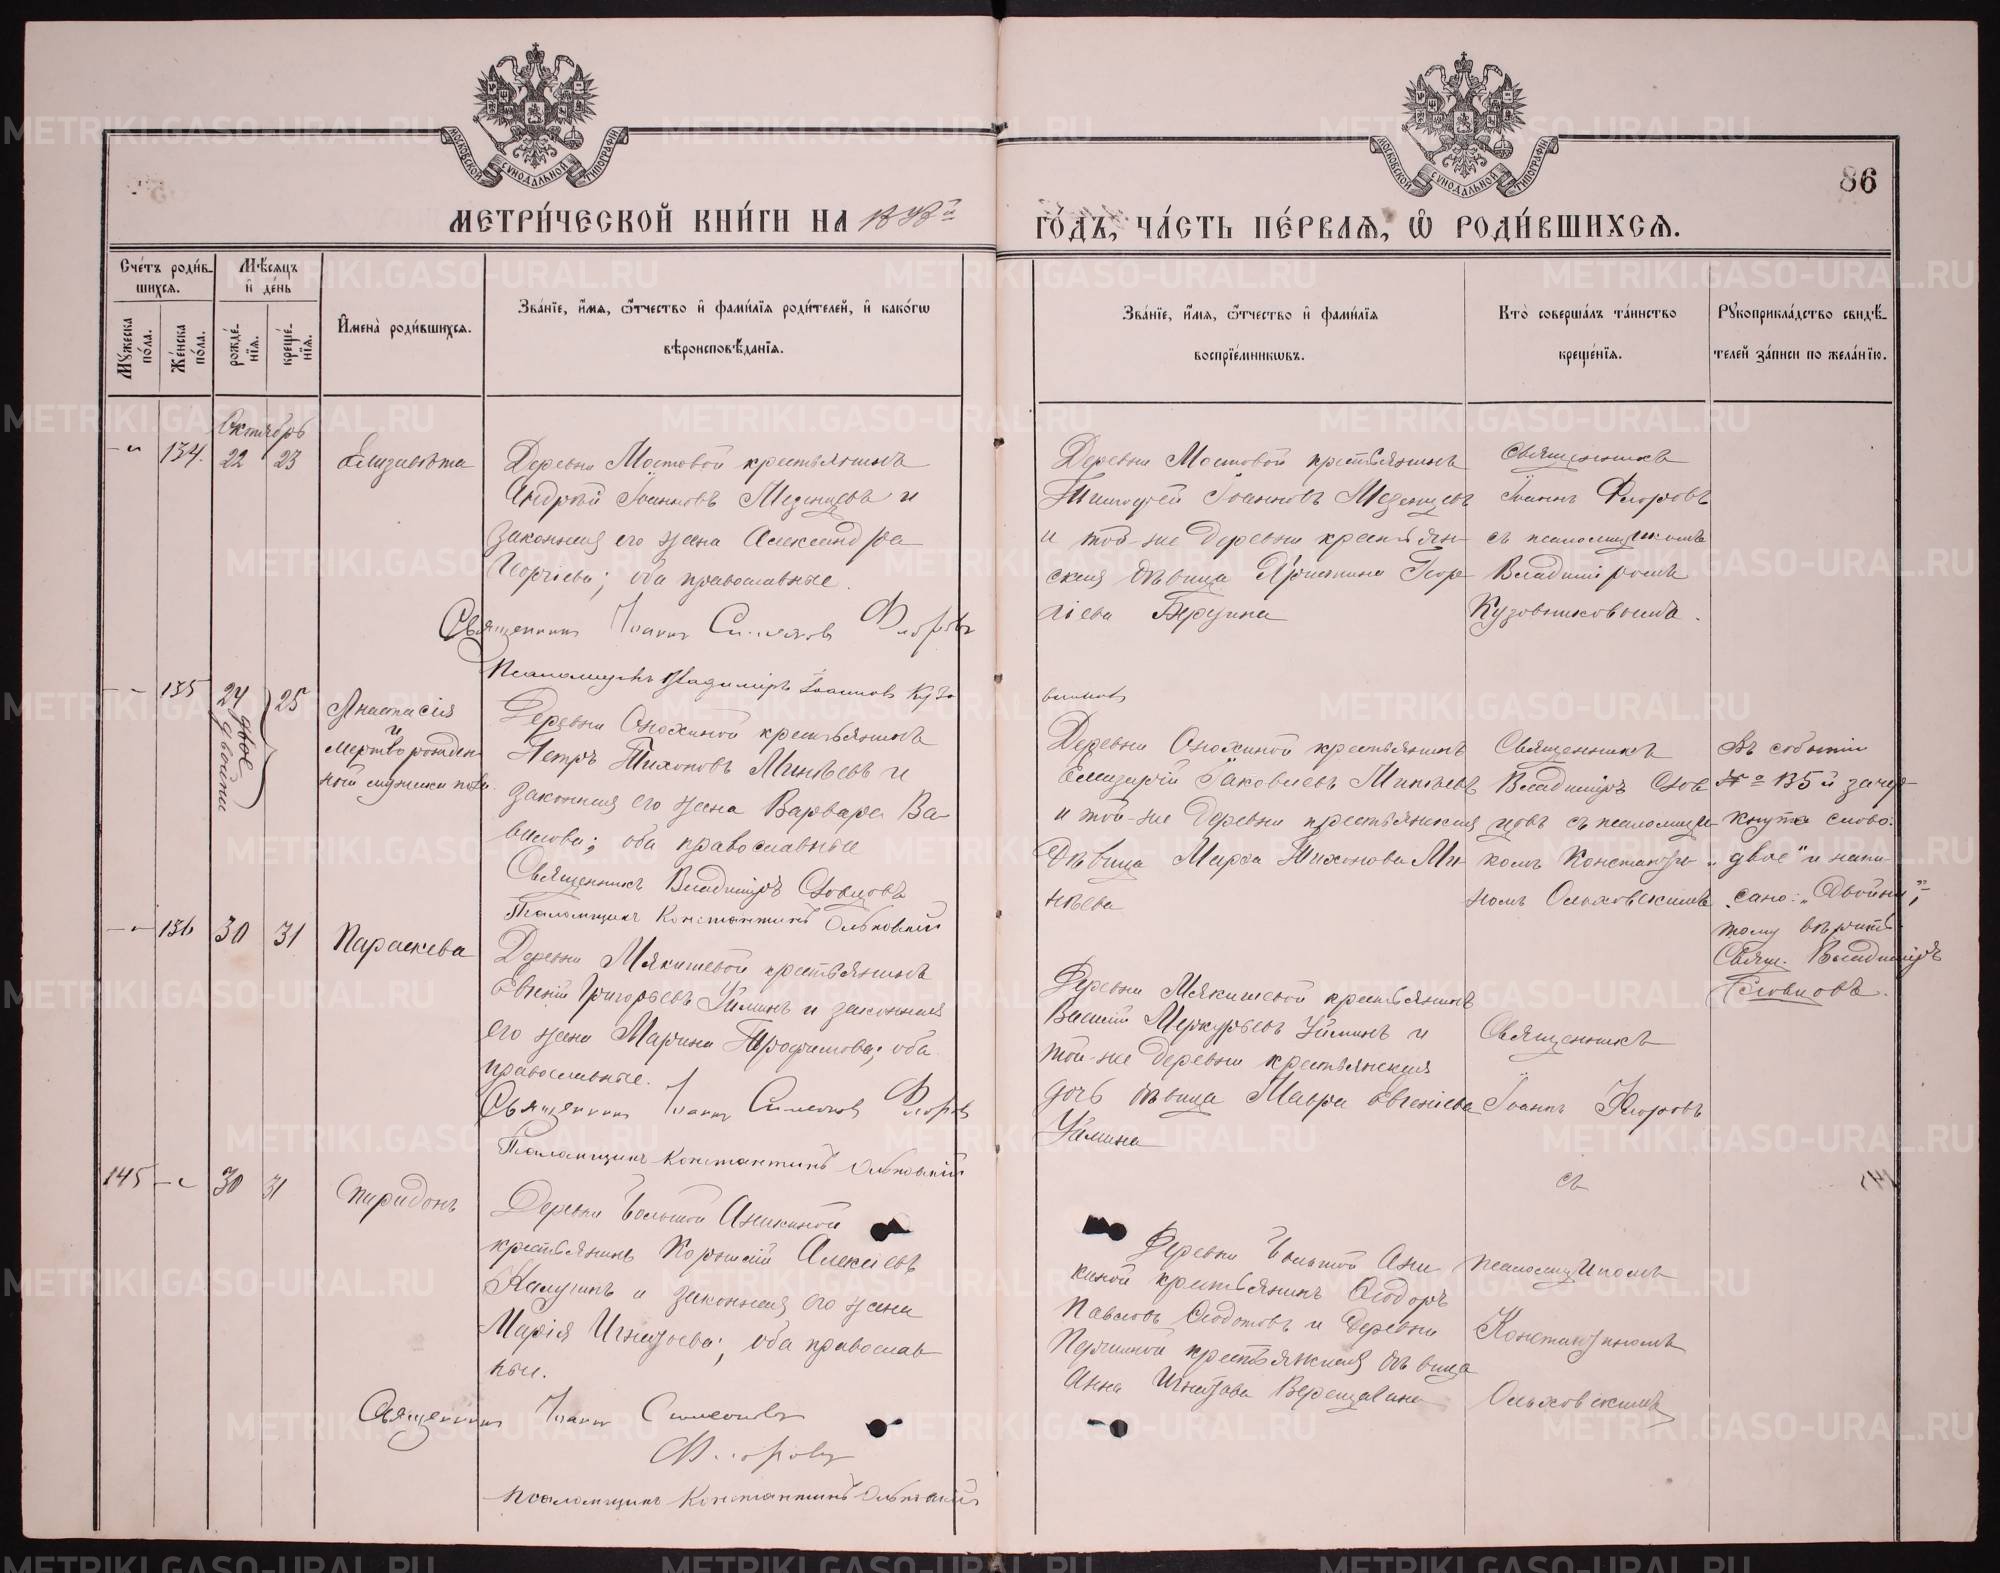 МОСКОВСКОЙ СѴНОДАЛЬНОЙ ТИПОГРАФІИ
МОСКОВСКОЙ СѴНОДАЛЬНОЙ ТИПОГРАФІИ
86
МЕТРИ́ЧЕСКОЙ КНИ́ГИ НА
ГО́ДЪ, ЧА́СТЬ ПЕ́РВАЯ, Ѡ РОДИ́ВШИХСЯ.
Сче́тъ роди́в-
шихся.
Мѣ́сяцъ
и де́нь
Му́жеска
по́ла.
Же́нска
по́ла.
рожде́-
нїя.
креще́-
нїя.
Имена̀ роди́вшихся.
Зва́нїе, и́мя, ѻ́тчество и фами́лїя роди́телей, и како́гѡ
вѣроисповѣ́данїя.
Зва́нїе, и́мя, ѻ́тчество и фами́лїя
воспрїе́мникѡвъ.
Кто̀ соверша́лъ та́инство
креще́нїя.
Рꙋкоприкла́дство свидѣ́-
телей за́писи по жела́нїю.
Октябрь
134. 22 23 Елизавета
Деревни Мостовой крестьянинъ
Андрей Іоанновъ Мезенцевъ и
законная его жена Александра
Георгіева; оба православные.
Священникъ Іоаннъ Симеоновъ Флоровъ
Псаломщикъ Владиміръ Іоанновъ Кузо
вниковъ
Деревни Мостовой крестьянинъ
Тимофей Іоанновъ Мезенцевъ
и той-же деревни крестьян-
ская дѣвица Христина Геор-
гіева Берсенина
Священникъ
Іоаннъ Флоровъ
съ псаломщикомъ
Владиміромъ
Кузовниковымъ.
135 24 25 Анастасія
и
мертворожден
ной мужеска пола
двое
двойни
Деревни Онохиной крестьянинъ
Петръ Тихоновъ Минѣевъ и
законная его жена Варвара Ва-
вилова; оба православные
Священникъ Владиміръ Словцовъ
Псаломщикъ Константинъ Ольховскій
Деревни Онохиной крестьянинъ
Елизарій Іаковлевъ Минѣевъ
и той-же деревни крестьянская
дѣвица Марѳа Тихонова Ми-
нѣева
Священникъ
Владиміръ Слов
цовъ съ псаломщи-
комъ Константи-
номъ Ольховскимъ
Въ событіи
№ 135й зачер-
кнуто слово:
„двое“ и напи-
сано: „Двойни“,
тому вѣрить
Свящ. Владиміръ
Словцовъ.
136 30 31 Параскева
Деревни Мякишевой крестьянинъ
Евгеній Григорьевъ Уйминъ и законная
его жена Марина Трофимова; оба
православные.
Священникъ Іоаннъ Симеоновъ Флоровъ
Псаломщикъ Константинъ Ольховскій
Деревни Мякишевой крестьянинъ
Василій Меркурьевъ Уйминъ и
той-же деревни крестьянская
дочь дѣвица Мавра Евгеніева
Уймина
Священникъ
Іоаннъ Флоровъ
съ
псаломщикомъ
Константиномъ
Ольховскимъ
145 30 31 Спиридонъ
Деревни Большой Аникиной
крестьянинъ Корнилій Алексіевъ
Калугинъ и законная его жена
Марія Игнатьева; оба православ-
ные.
Священникъ Іоаннъ Симеоновъ
Флоровъ
Псаломщикъ Константинъ Ольховскій
Деревни Большой Ани
киной крестьянинъ Ѳеодоръ
Павловъ Ѳедотовъ и деревни
крестьянская дѣвица
Анна Игнатова Верещагина
METRIKI.GASO-URAL.RU